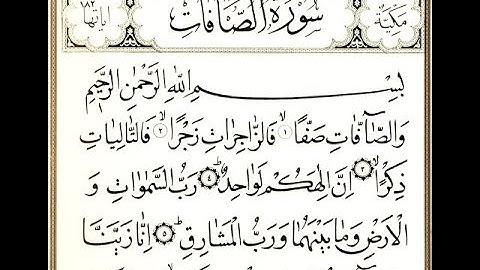 مكية سورة الصافات ١٨٢ اياتها
بسم الله الرحمن الرحيم ١
والصآفات صفا ١ فالزاجرات زجرا ٢ فالتاليات
ذكرا ٣ ان الهكم لواحد ٤ رب السموات و
الارض وما بينهما ورب المشارق ٥ انا زينا